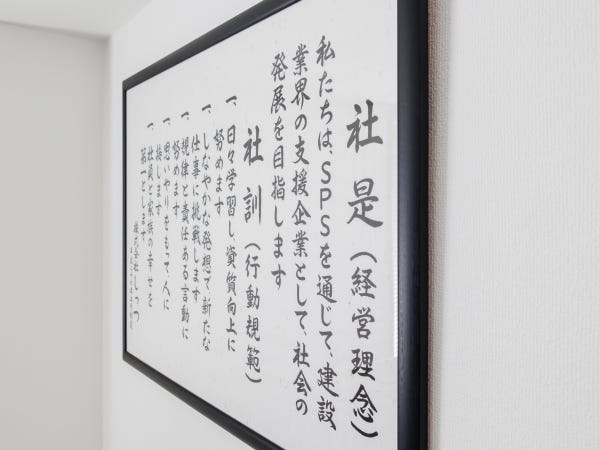 社是（経営理念）
私たちは、ＳＰＳを通じて、建設
業界の支援企業として、社会の
発展を目指します
社訓（行動規範）
一、日々学習し、資質向上に
努めます
一、しなやかな発想で、新たな
仕事に挑戦します
一、規律と責任ある言動に
努めます
一、思いやりをもって、人に
接します
一、社員と家族の幸せを
第一とします
株式会社しっつ